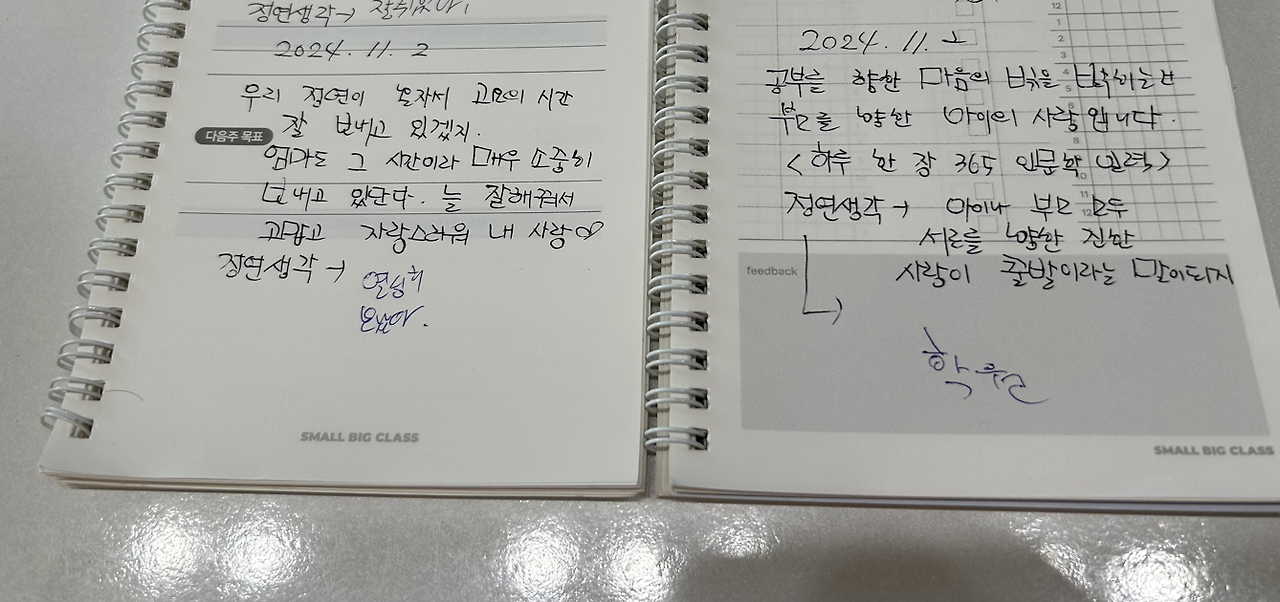 정연생각→ 잘쉬었다!
2024. 11. 2
우리 정연이 혼자서 고요의 시간
잘 보내고 있겠지.
다음주 목표
엄마도 그 시간이라 매우 소중히
보내고 있단다. 늘 잘해줘서
고맙고 자랑스러워 내 사랑♡
정연생각→
열심히
보냈다.
SMALL BIG CLASS
12
1
2
3
2024. 11. 2
공부를 향한 마음의 빛을 밝히는 건
부모를 향한 아이의 사랑입니다.
<하루 한 장 365 인문학 달력>
정연생각→ 아이나 부모 모두
서로를 향한 진한
사랑이 출발이라는 말이되지
feedback
학원
SMALL BIG CLASS